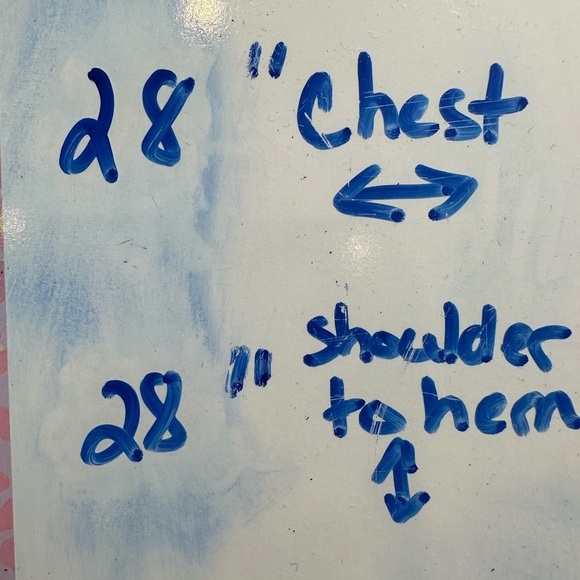 28" Chest
↔
28" shoulder
to hem
↕